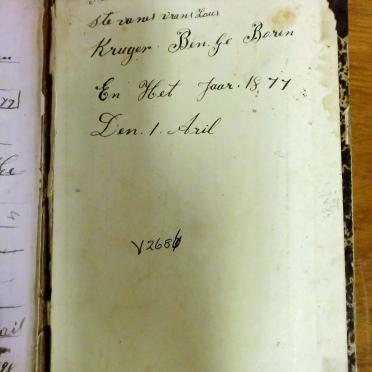 Ste vanes vrans Lous
Kruger Ben. ge Boren
En Het Jaar. 1877
Den. 1. Aril
V2686
77